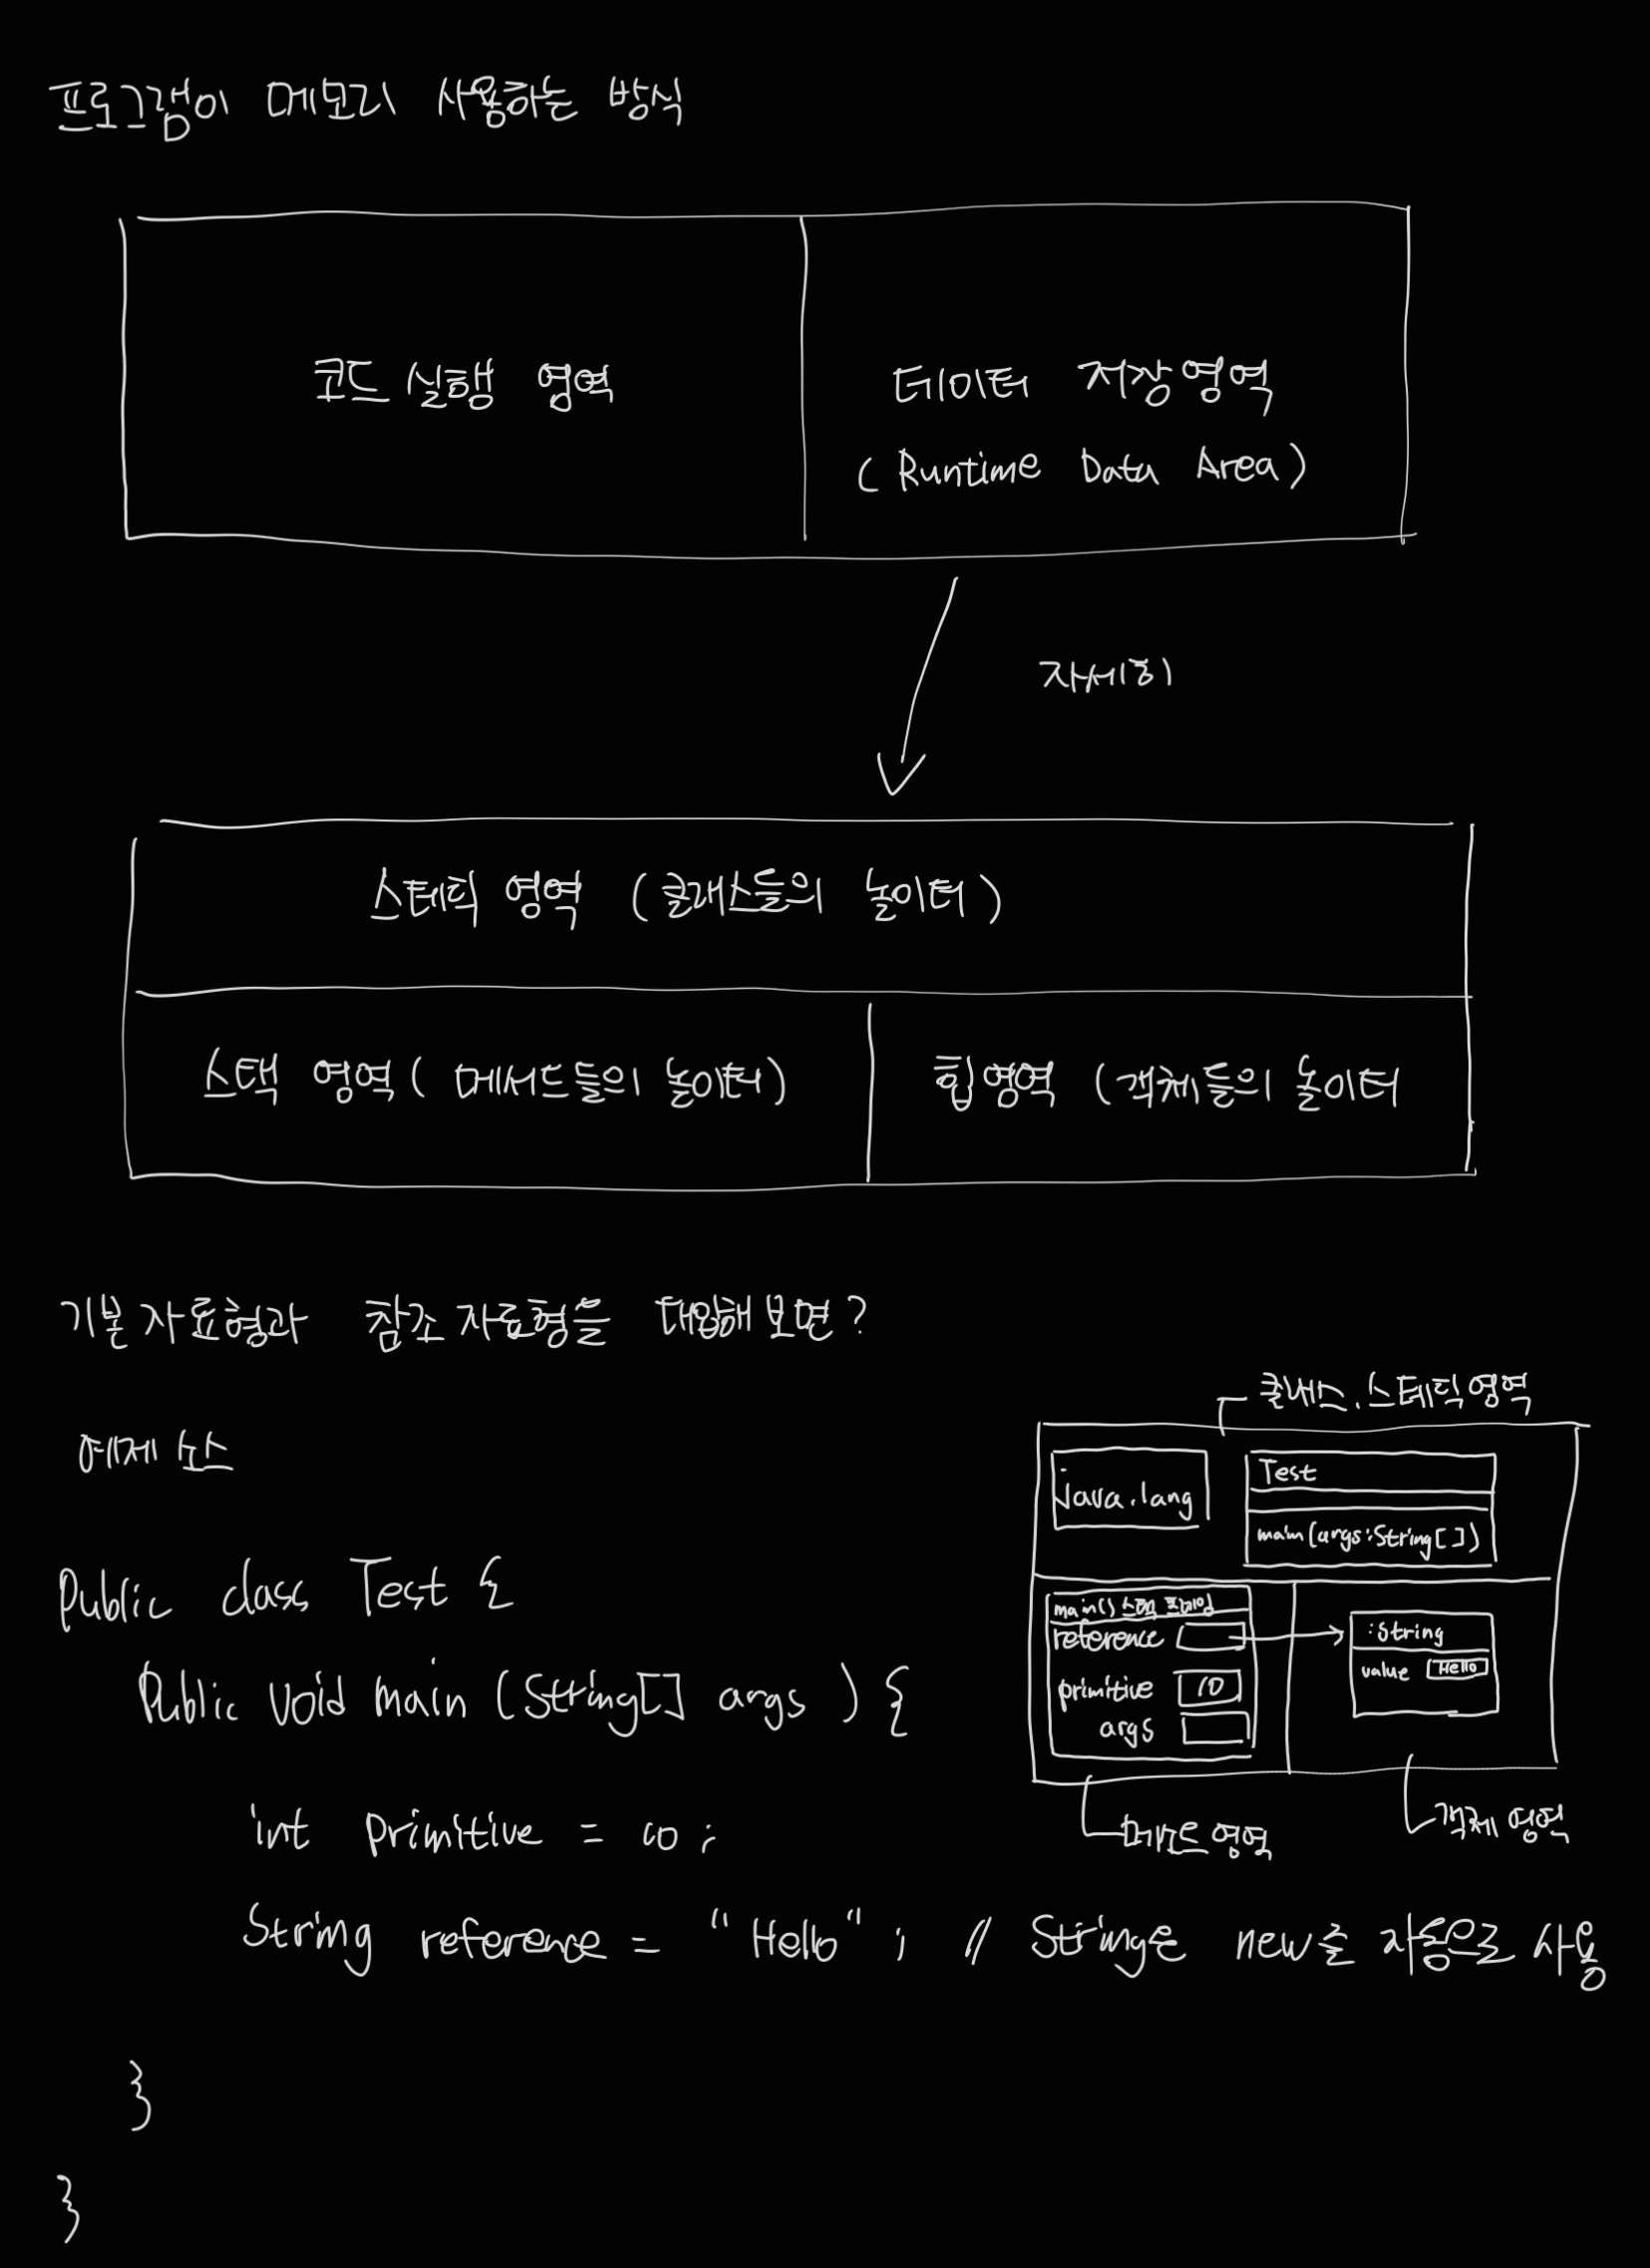 프로그램이 메모리 사용하는 방식
코드 실행 영역
데이터 저장영역
(Runtime Data Area)
자세히
스테틱 영역 (클래스들의 놀이터)
스택 영역( 메서드들의 놀이터)
힙영역 (객체들의 놀이터
기본자료형과 참조자료형을 대입해보면?
예제 소스
클래스.스테틱영역
java.lang
Test
main(args:String[])
main() 스택 프레임
reference
primitive 10
args
:String
value Hello
메서드영역
객체영역
Public class Test {
Public void main (String[] args ) {
int primitive = 10 ;
String reference = "Hello" ; // String은 new를 자동으로 사용
}
}